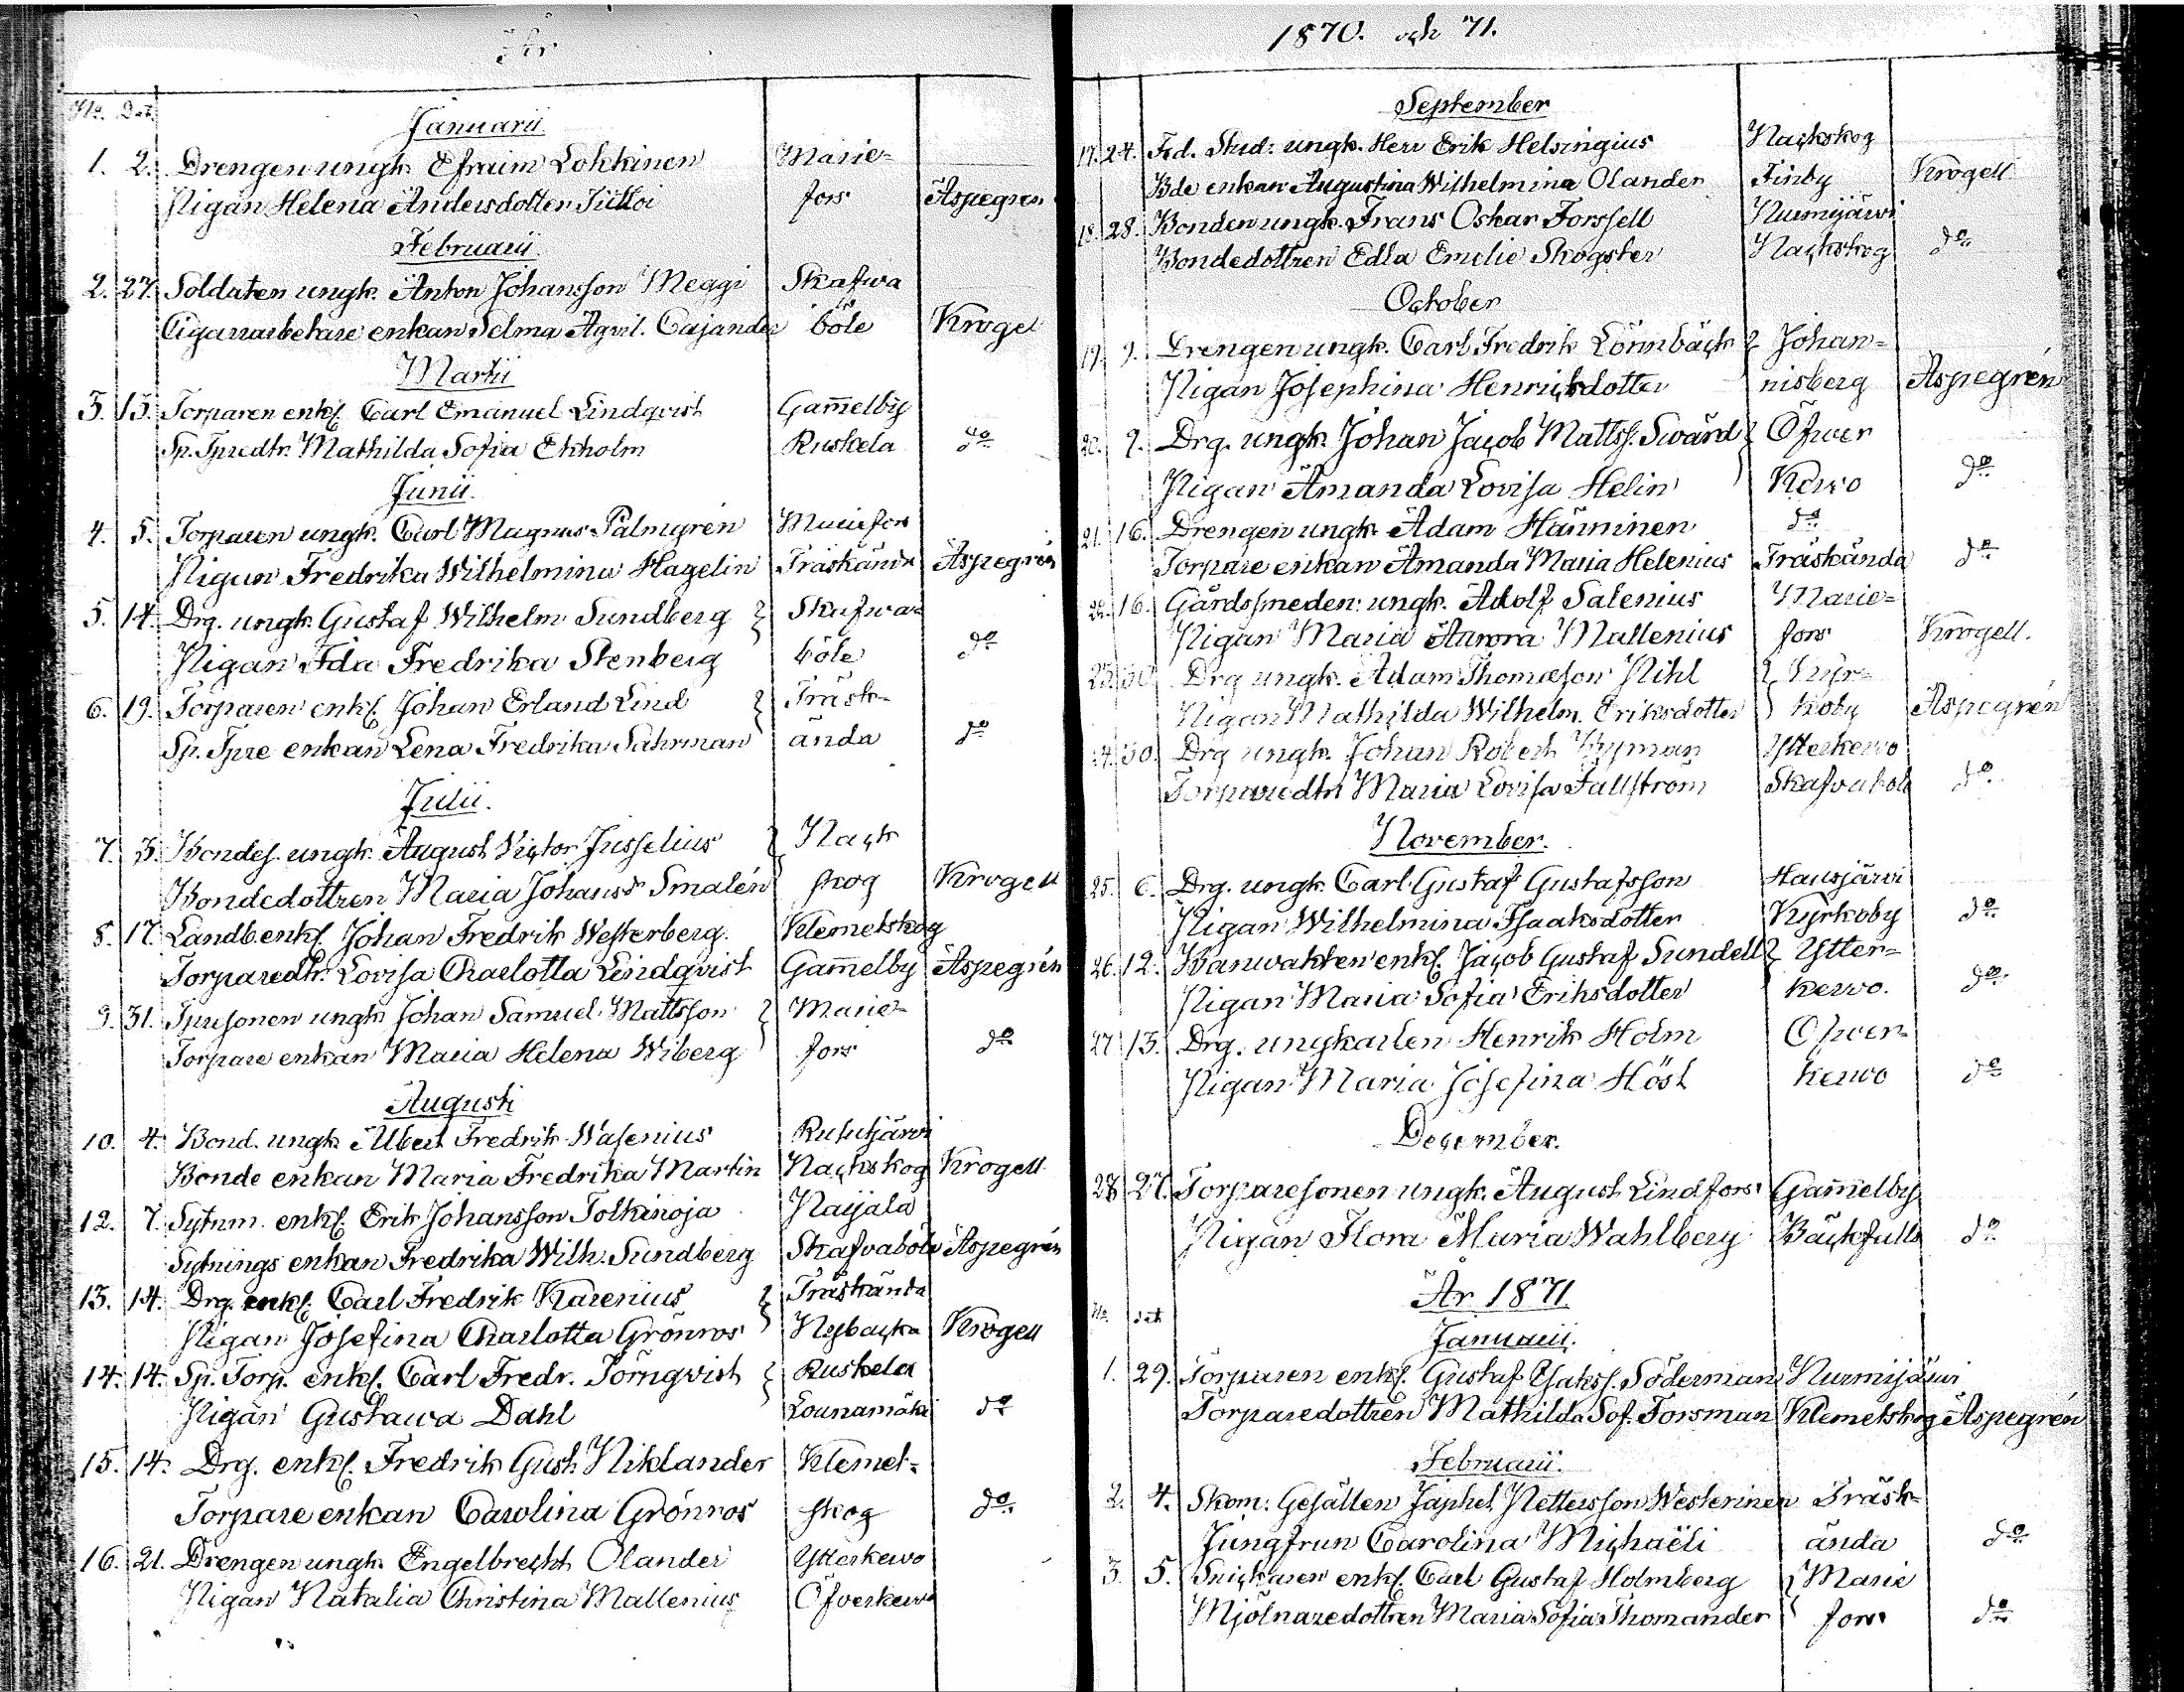 År
No. Dat.
Januarii
1. 2. Drengen ungk. Efraim Lokkinen Marie-
Pigan Helena Andersdotter fors Aspegren
Februarii
2. 27. Soldaten ungk. Anton Johansson Meggi Skafwa
Cigarrarbetare enkan Selma Agvil. Cajander böle Krogel
Martii
3. 13. Torparen enkl. Carl Emanuel Lindqvist Gam̄elby
Sp. Tpredtr. Mathilda Sofia Ekholm Ruskela do
Junii.
4. 5. Torparen ungk. Carl Magnus Palmgrén Mariefors
Pigan Fredrika Wilhelmina Hagelin Träskända Aspegrén
5. 14. Drg. ungk. Gustaf Wilhelm Sundberg Skafwa-
Pigan Ida Fredrika Stenberg böle do
6. 19. Torparen enkl. Johan Erland Lind Träsk-
Sp. Tpre enkan Lena Fredrika Sahrman ända do
Julii.
7. 3. Bondes. ungk. August Victor Jusselius Nack
Bondedottren Maria Johansdr Smalén skog Krogell
8. 17. Landb. enkl. Johan Fredrik Westerberg. Klemetskog
Torparedtr. Lovisa Charlotta Lindqvist Gam̄elby Aspegrén
9. 31. Tpresonen ungk. Johan Samuel Mattsson Marie-
Torpare enkan Maria Helena Wiberg fors do
Augusti
10. 4. Bond. ungk. Albert Fredrik Wasenius Rusutjärvi
Bonde enkan Maria Fredrika Martin Nackskog Krogell
12. 7. Sytnm. enkl. Erik Johansson Tolkinoja Paijala
Sytnings enkan Fredrika Wilh. Sundberg Skafvaböle Aspegrén
13. 14. Drg. enkl. Carl Fredrik Karenius Träskända
Pigan Josefina Charlotta Grönros Nybacka Krogell
14. 14. Sp. Torp. enkl. Carl Fredr. Törnqvist Ruskela
Pigan Gustawa Dahl Lounamäki do
15. 14. Drg. enkl. Fredrik Gust. Niklander Klemet-
Torpare enkan Carolina Grönros skog do
16. 21. Drengen ungk. Engelbrecht Olander Ytterkerwo
Pigan Natalia Christina Mallenius Öfverkerwo
1870. och 71.
September
17. 24. Fd. Stud: ungk. Herr Erik Helsingius Nackskog
Bde enkan Augustina Wilhelmina Olander Finby Krogell
18. 28. Bonden ungk. Frans Oskar Forssell Nurmijärwi
Bondedottren Edla Emelie Skogster Nackskog do
October
19. 9. Drengen ungk. Carl Fredrik Lönnbäck Johan-
Pigan Josephina Henricksdotter nisberg Aspegrén
20. 9. Drg. ungk. Johan Jacob Mattss. Swärd Öfwer
Pigan Amanda Lovisa Helin Kerwo do
21. 16. Drengen ungk. Adam Hänninen do
Torpare enkan Amanda Maria Helenius Träskända do
22. 16. Gårdssmeden: ungk. Adolf Salenius Marie-
Pigan Maria Aurora Mallenius fors Krogell.
23. 30. Drg ungk. Adam Thomasson Pihl Kyr-
Pigan Mathilda Wilhelm. Eriksdotter koby Aspegrén
24. 30. Drg ungk. Johan Robert Nyman Ytterkerwo
Torparedtr Maria Lovisa Fallström Skafvaböle do
November.
25. 6. Drg. ungk. Carl Gustaf Gustafsson Hausjärvi
Pigan Wilhelmina Isaaksdotter Kyrkoby do
26. 12. Banwakten enkl. Jacob Gustaf Sundell Ytter-
Pigan Maria Sofia Eriksdotter kerwo. do
27. 13. Drg. ungkarlen Henrik Holm Öfwer-
Pigan Maria Josefina Höst kerwo do
December.
28 27. Torparesonen ungk. August Lindfors Gam̄elby
Pigan Flora Maria Wahlberg Bäckfulla do
År 1871
No. dat.
Januarii.
1. 29. Torparen enkl. Gustaf Isakss. Söderman Nurmijärwi
Torparedottren Mathilda Sof. Forsman Klemetskog Aspegrén
Februarii.
2. 4. Skom: Gesällen Japhet Pettersson Westerinen Träsk-
Jungfrun Carolina Michaëli ända do
3. 5. Snickaren enkl. Carl Gustaf Holmberg Marie
Mjölnaredottren Maria Sofia Thomander fors do